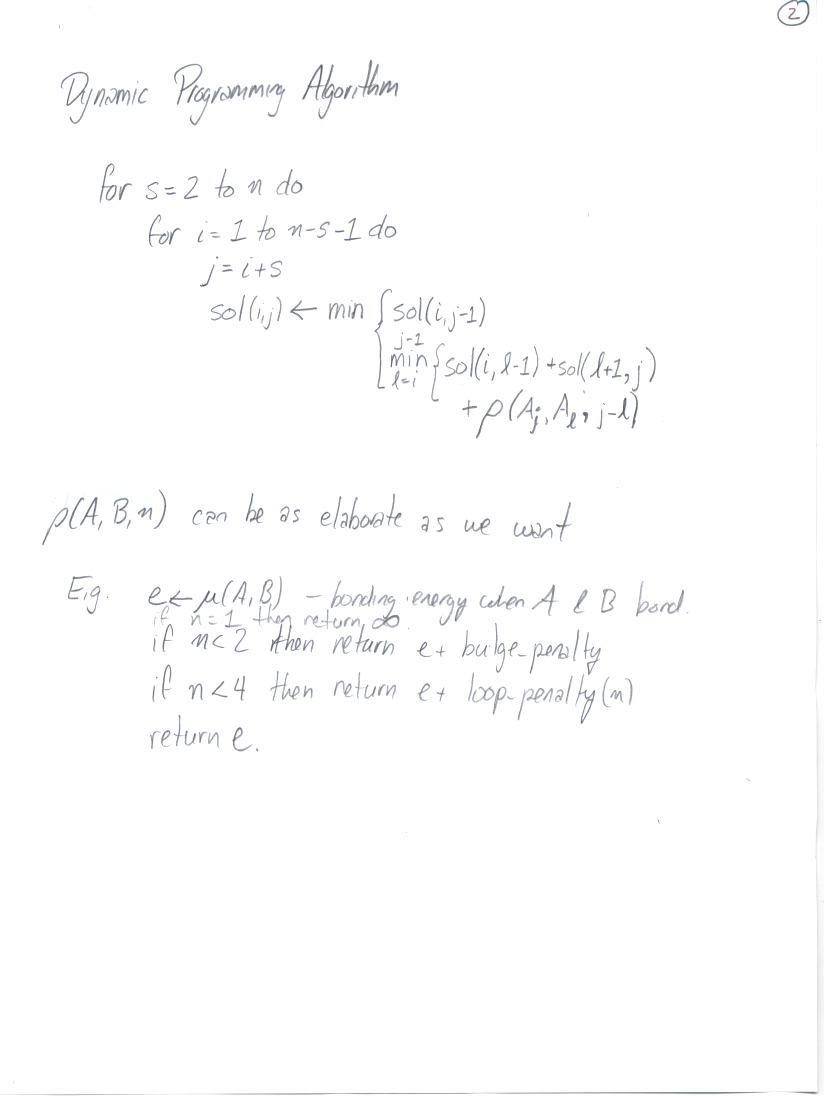 2
Dynamic Programming Algorithm
for s=2 to n do
for i=1 to n-s-1 do
j=i+s
sol(i,j) ← min { sol(i,j-1)
j-1
min { sol(i,l-1) + sol(l+1,j)
l=i
+ρ(Aj, Al, j-l)
ρ(A,B,n) can be as elaborate as we want
E.g. e ← μ(A,B) – bonding energy when A & B bond.
if n=1 then return ∞.
if n<2 then return e+ bulge-penalty
if n<4 then return e+ loop-penalty(n)
return e.